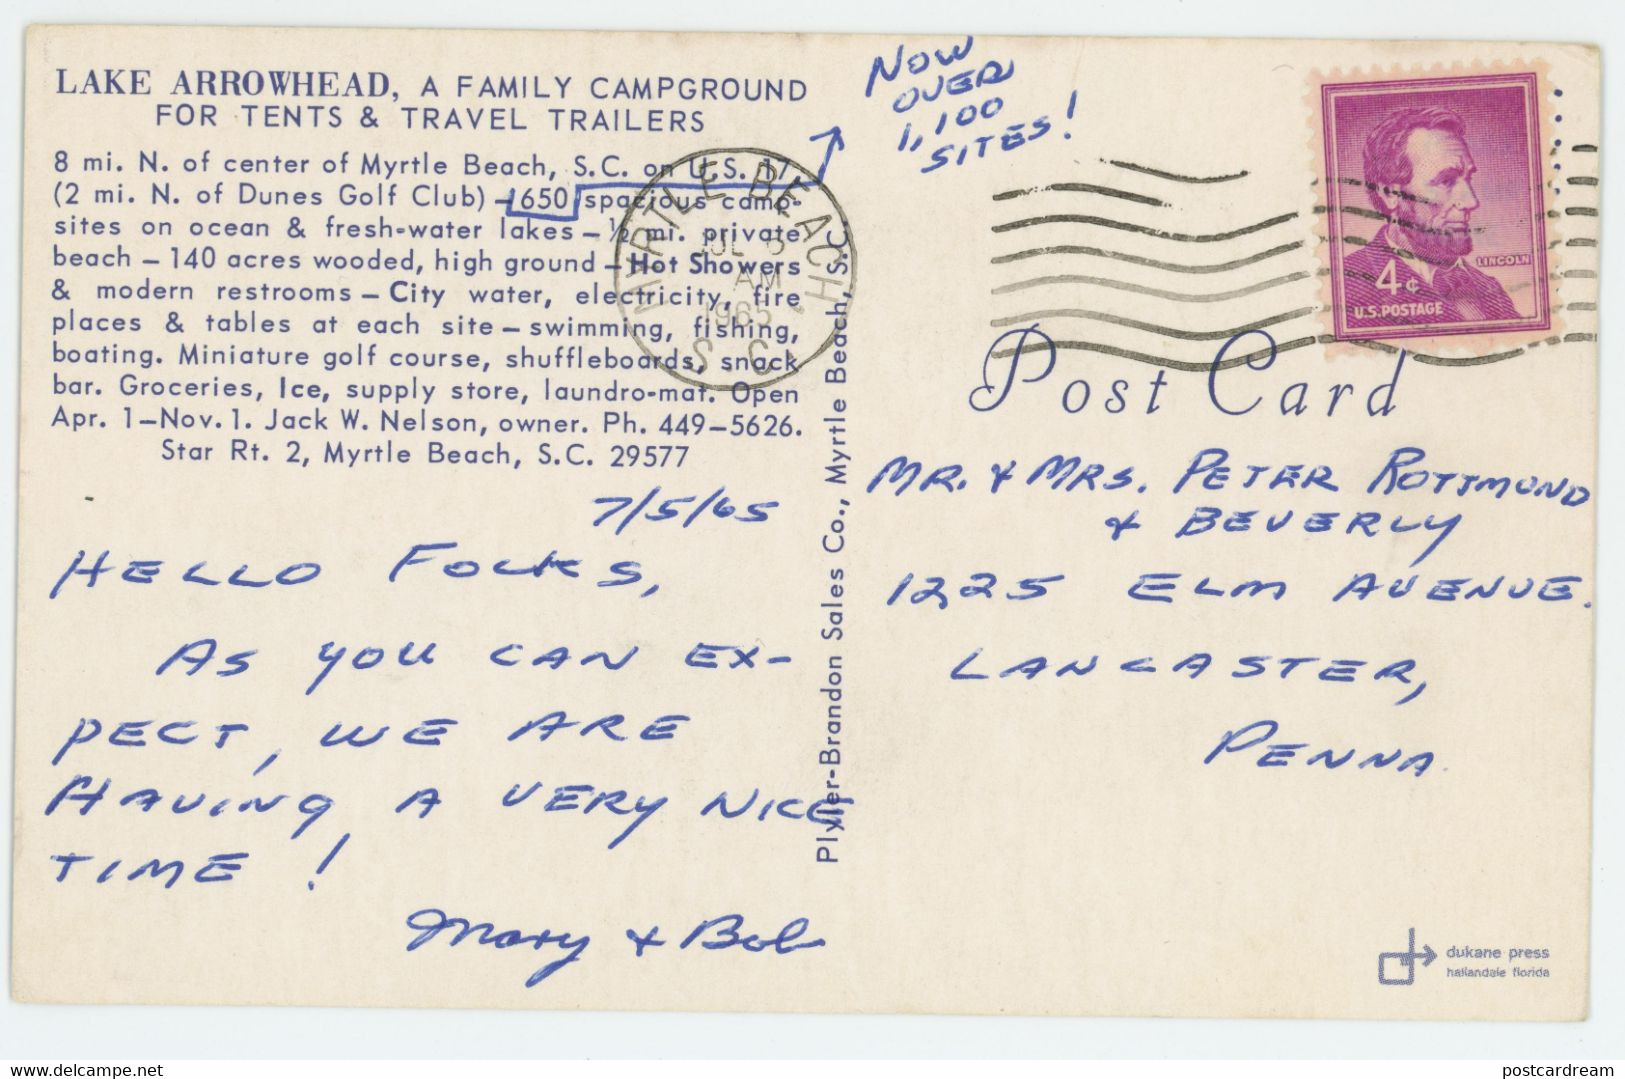 LAKE ARROWHEAD, A FAMILY CAMPGROUND
FOR TENTS & TRAVEL TRAILERS
8 mi. N. of center of Myrtle Beach, S.C. on U.S. 17
(2 mi. N. of Dunes Golf Club) – 650 spacious camp-
sites on ocean & fresh-water lakes – ½ mi. private
beach – 140 acres wooded, high ground – Hot Showers
& modern restrooms – City water, electricity, fire
places & tables at each site – swimming, fishing,
boating. Miniature golf course, shuffleboards, snack
bar. Groceries, Ice, supply store, laundro-mat. Open
Apr. 1–Nov. 1. Jack W. Nelson, owner. Ph. 449–5626.
Star Rt. 2, Myrtle Beach, S.C. 29577
NOW
OVER
1,100
SITES!
MYRTLE BEACH
JUL 5
AM
1965
S.C.
LINCOLN
4¢
U.S. POSTAGE
Post Card
7/5/65
HELLO FOLKS,
AS YOU CAN EX-
PECT, WE ARE
HAVING A VERY NICE
TIME!
Mary & Bob
Plyler-Brandon Sales Co., Myrtle Beach, S.C.
MR. & MRS. PETER ROTTMUND
& BEVERLY
1225 ELM AVENUE.
LANCASTER,
PENNA.
dukane press
hallandale florida
www.delcampe.net
postcardream